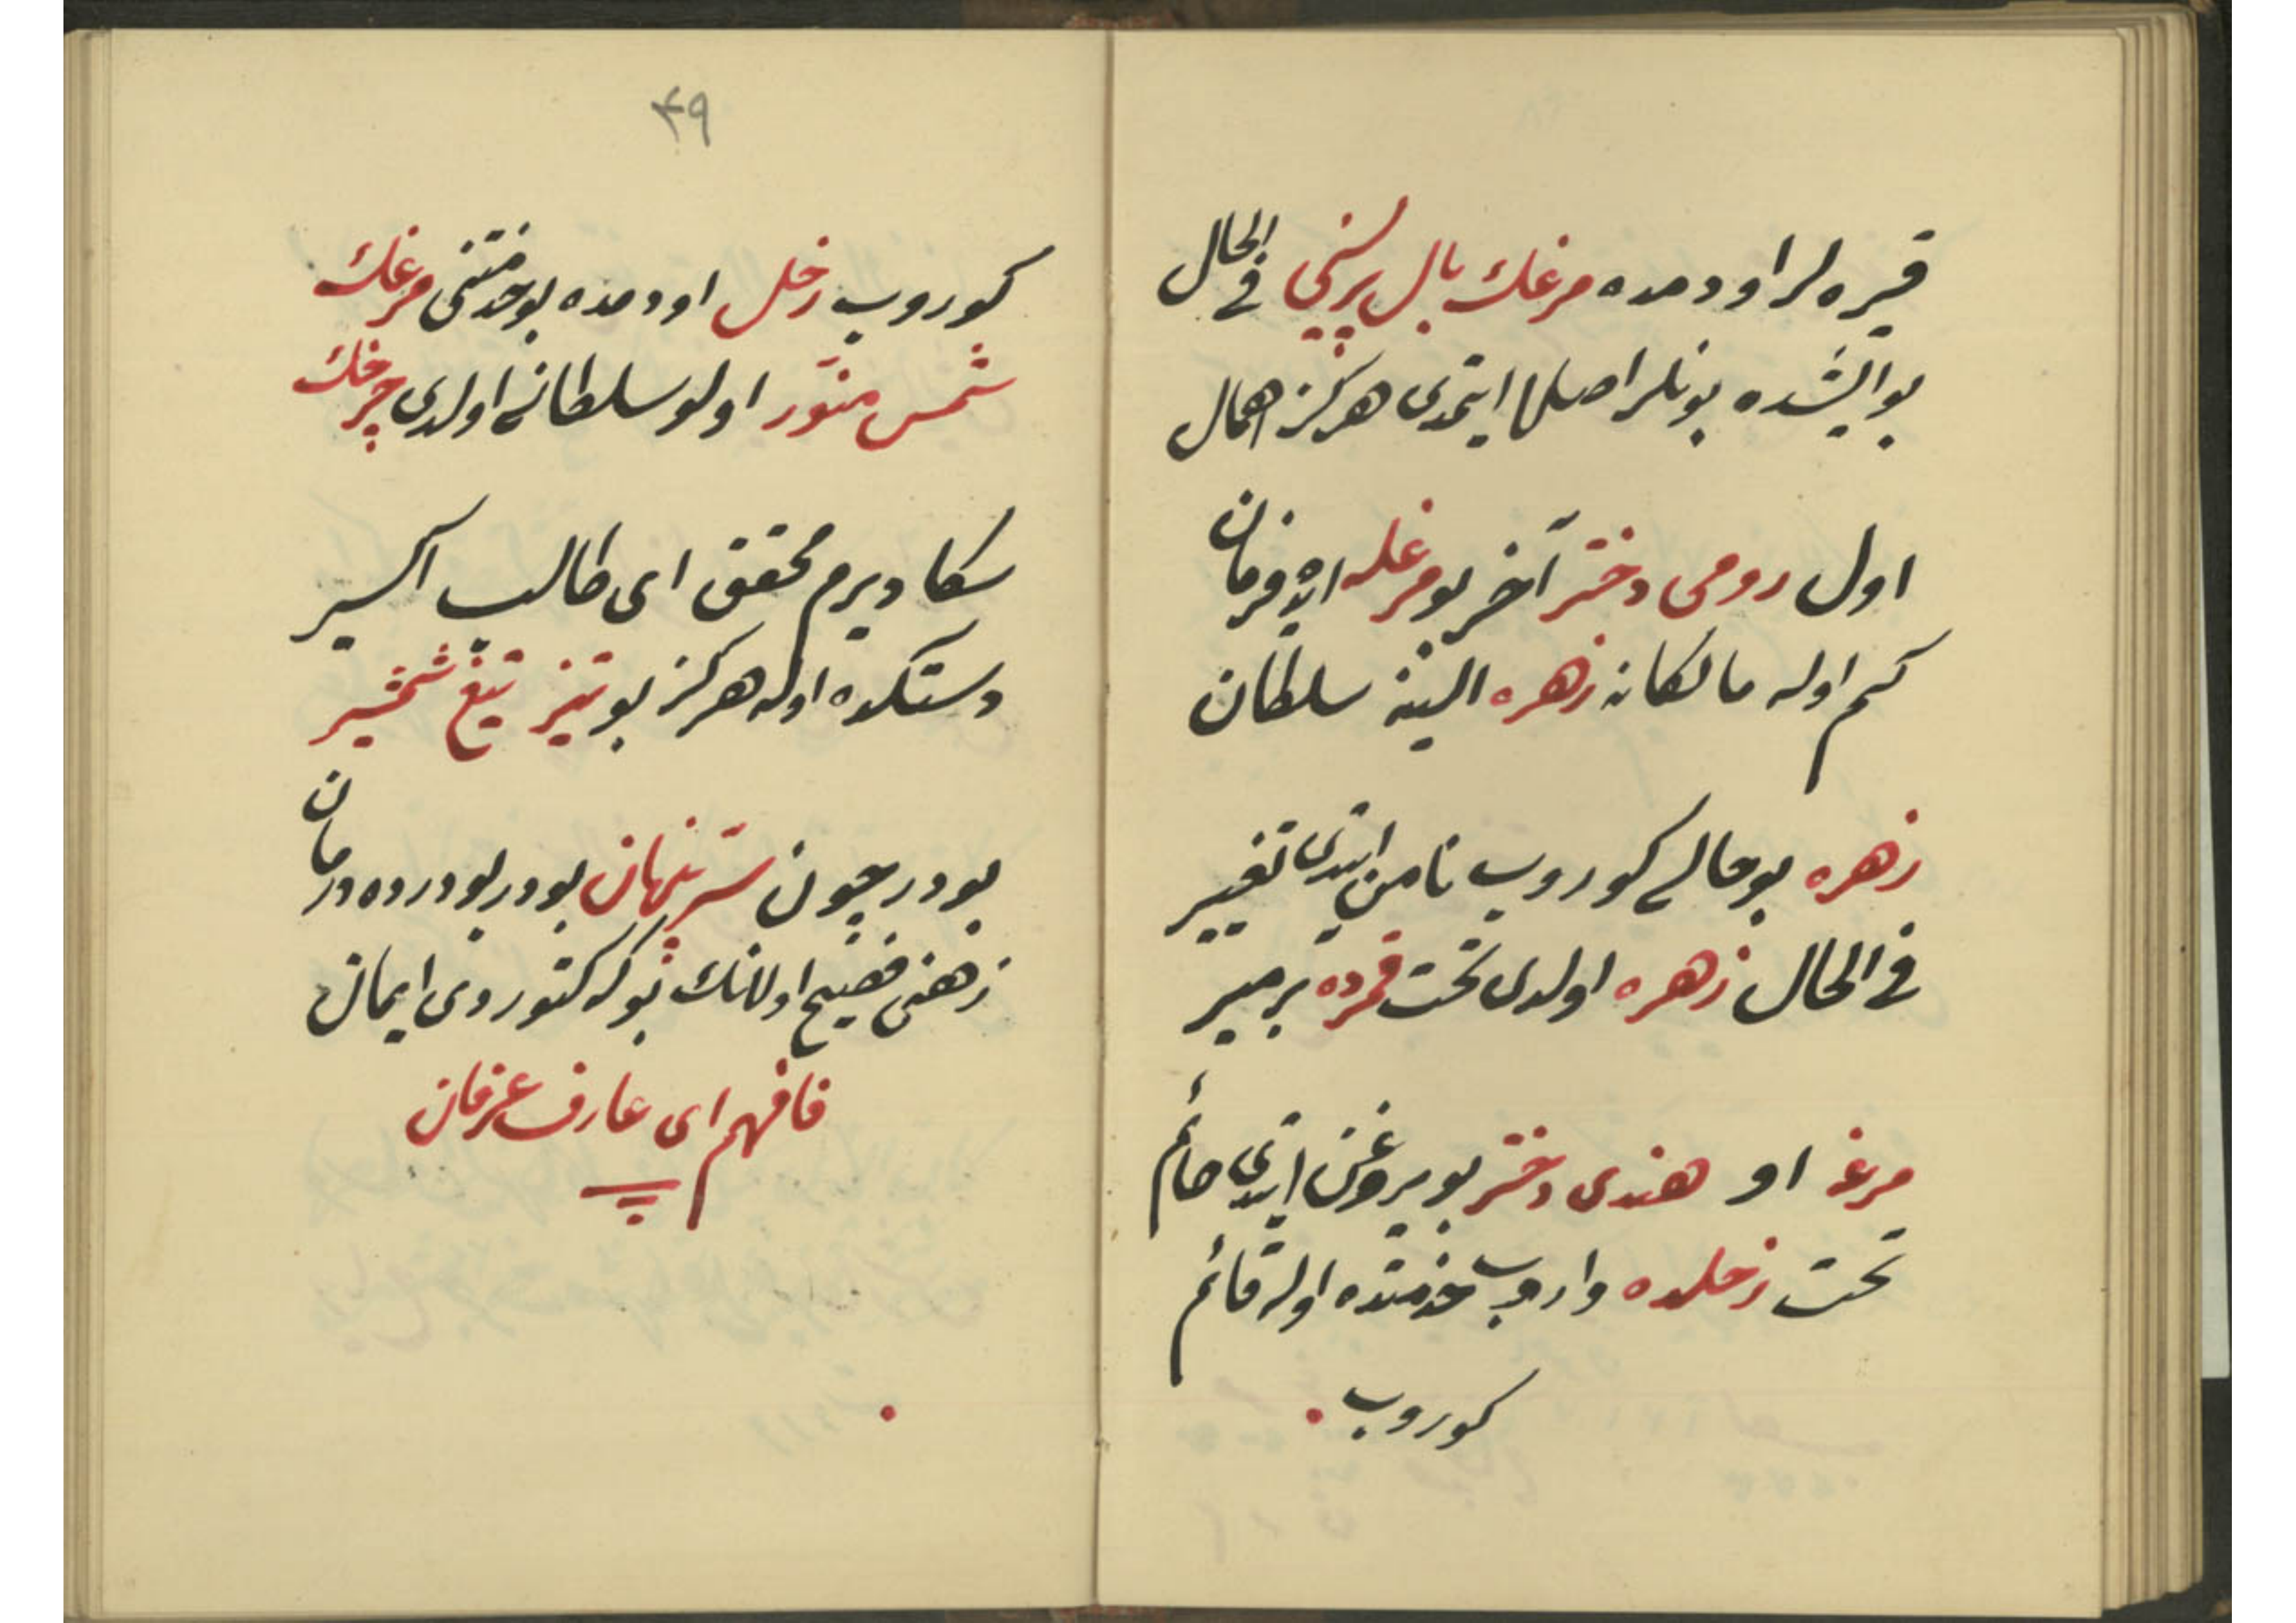 قیره لر اودمده مرغك بال پرلنی فی الحال
بو ایشده بونلر اصلا ایتمدی هرکز اهمال
اول رومی دختر آخر بو مرغله ایده فرمان
کم اوله مالکانه زهره الینه سلطان
زهره بو حالی کوروب نامن ایتدی تغییر
فی الحال زهره اولدی تحت قمرده بر میر
مرغ او هندی دختر بو یروغن ایتدی حائم
تحت زحلده واروب خدمتده اوله قائم
کوروب
۴۹
کوروب زحل اودمده بو خدمتنی مرغك
شمس منوّر اولو سلطانی اولدی چرخك
سکا دیرم محقق ای طالب اکسیر
دستکده اوله هرکز بو تیز تیغ شمشیر
بودر چون سرّ پنهان بودر بو درده درمان
زهنی فضیح اولانك بوکه کتوردی ایمان
فافهم ای عارف عرفان